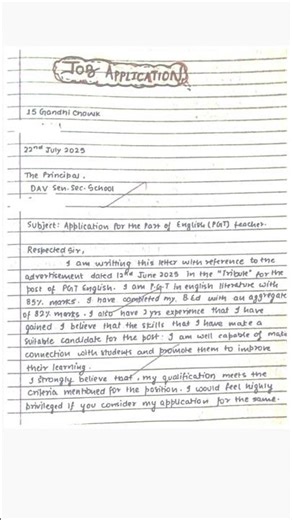 JOB APPLICATION
15 Gandhi Chowk
22nd July 2025
The Principal,
DAV Sen. Sec. School
Subject: Application for the Post of English (PGT) teacher.
Respected Sir,
I am writting this letter with reference to the
advertisement dated 12th June 2025 in the "Tribute" for the
post of PGT English. I am P.G.T in english literature with
85% marks. I have completed my B.Ed with an aggregate
of 82% marks. I also have 2 yrs experience that I have
gained I believe that the skills that I have make a
suitable candidate for the post. I am well capable of make
connection with students and promote them to improve
their learning.
I strongly believe that, my qualification meets the
criteria mentioned for the position. I would feel highly
privileged if you consider my application for the same.